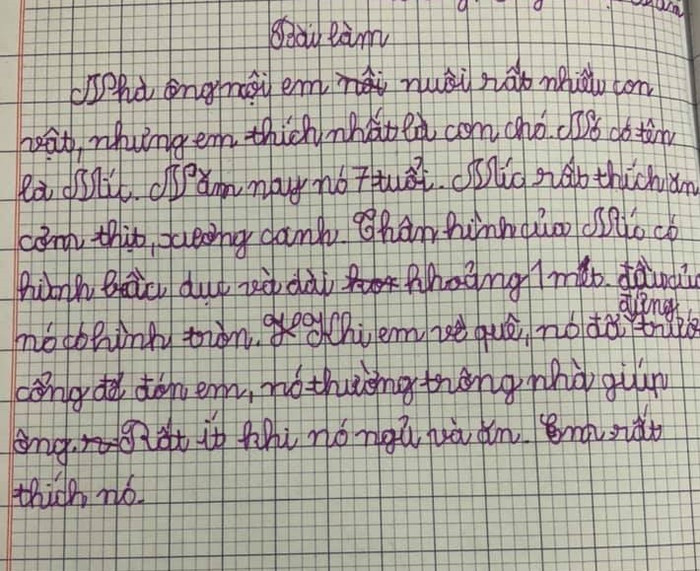 Bài làm
Nhà ông nội em nuôi rất nhiều con
vật, nhưng em thích nhất là con chó. Nó có tên
là Míc. Năm nay nó 7 tuổi. Míc rất thích ăn
cơm thịt, xương canh. Thân hình của Míc có
hình bầu dục và dài khoảng 1 mét. đầu của
nó có hình tròn. Khi em về quê, nó đã đứng trước
cổng để đón em, nó thường trông nhà giúp
ông. Rất ít khi nó ngủ và ăn. Em rất
thích nó.